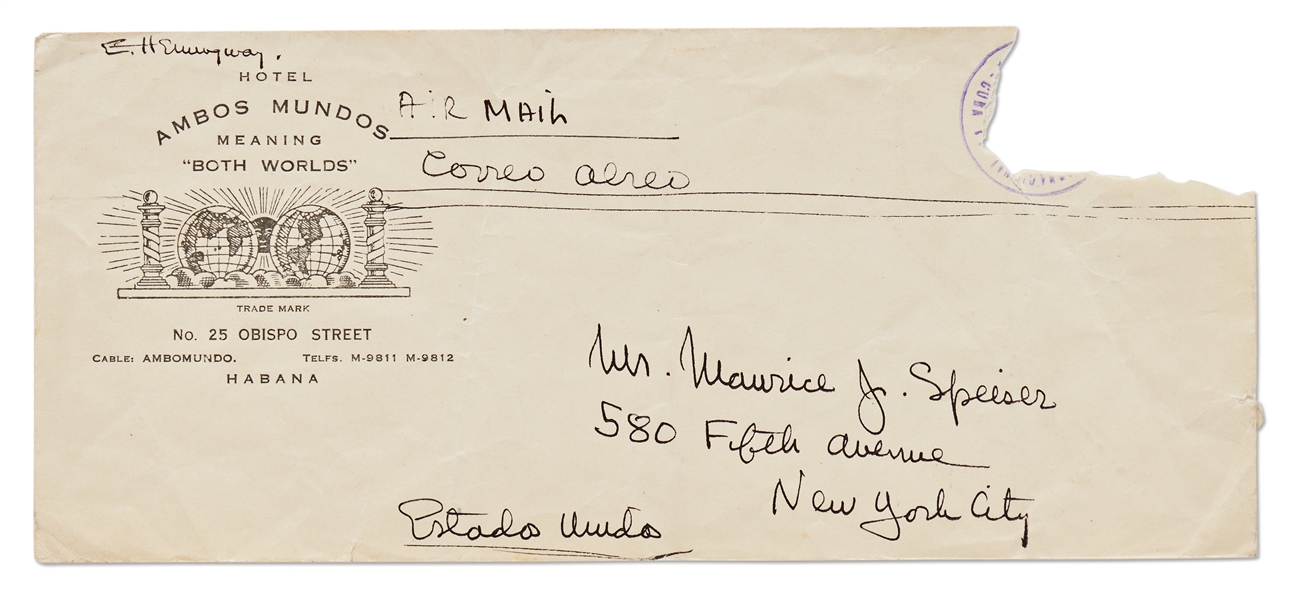 E. Hemingway.
HOTEL
AMBOS MUNDOS
MEANING
"BOTH WORLDS"
TRADE MARK
No. 25 OBISPO STREET
CABLE: AMBOMUNDO. TELFS. M-9811 M-9812
HABANA
AiR MAiL
Correo aereo
CUBA
Mr. Maurice J. Speiser
580 Fifth Avenue
New York City
Estados Unidos